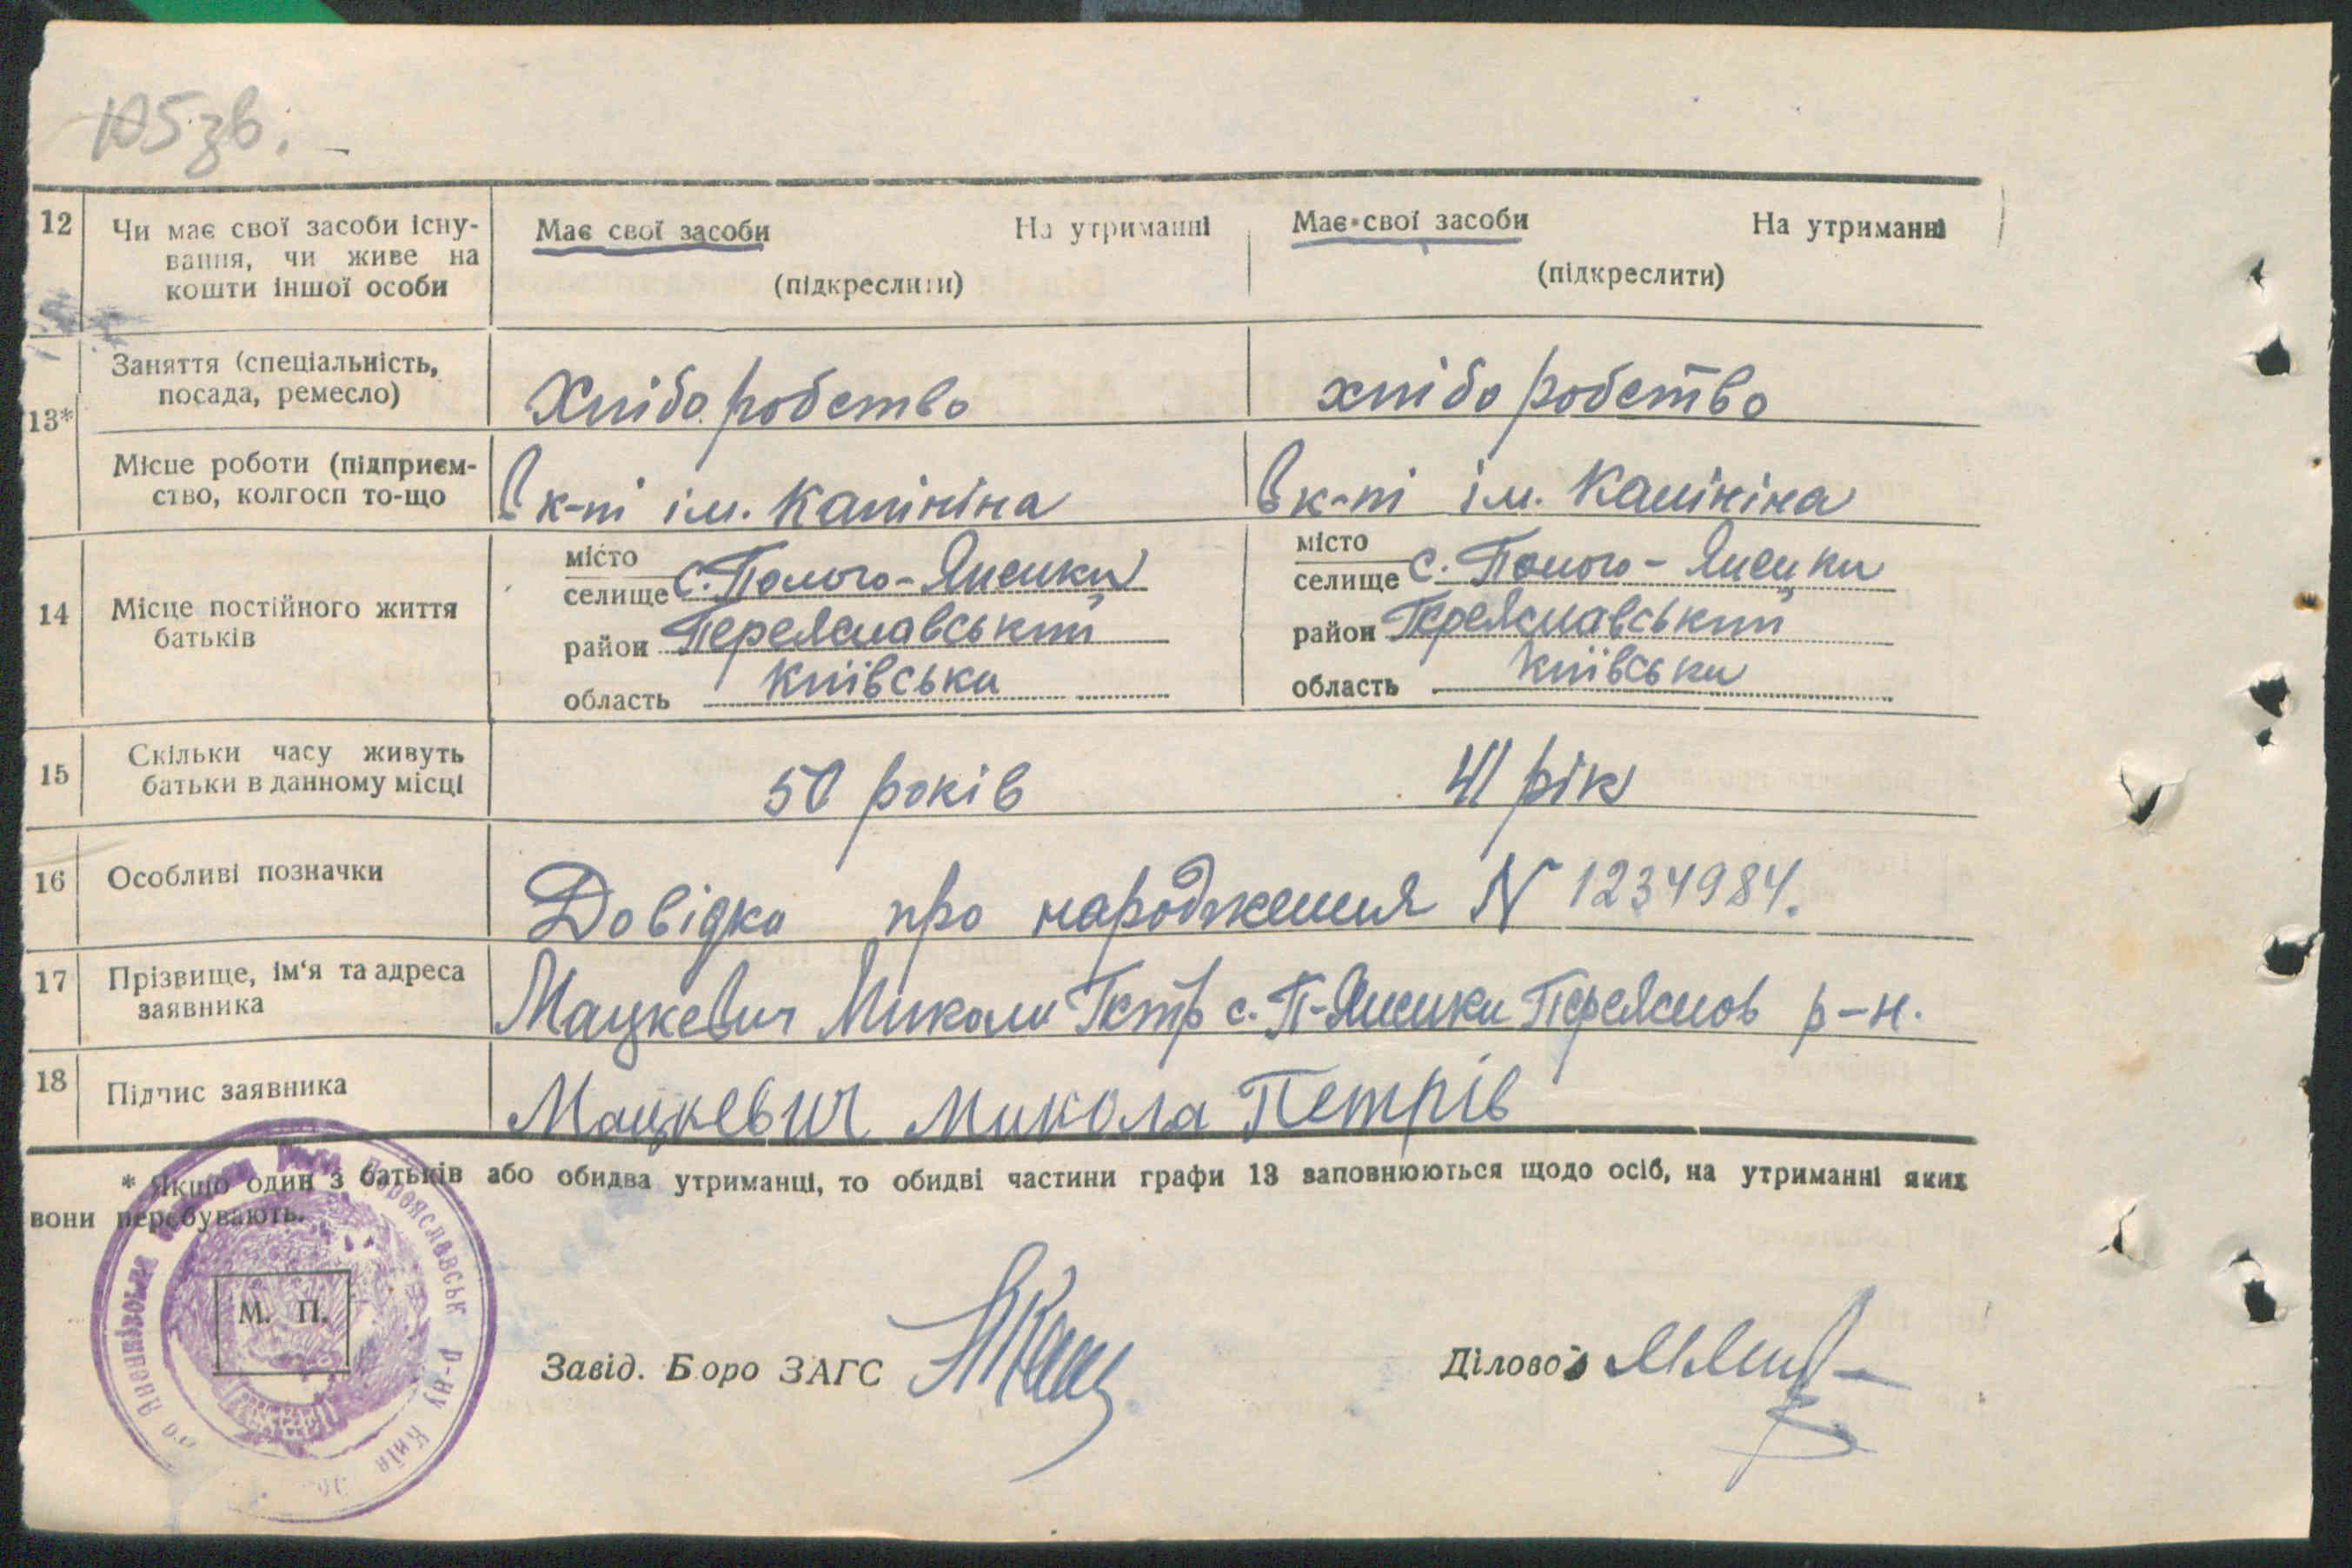 105 зв.
12 Чи має свої засоби існу-
вання, чи живе на
кошти іншої особи
Має свої засоби На утриманні
(підкреслити)
Має свої засоби На утриманні
(підкреслити)
13*
Заняття (спеціальність,
посада, ремесло)
Хлібо робство
хлібо робство
Місце роботи (підприєм-
ство, колгосп то-що
В к-пі ім. Калініна
В к-пі ім. Калініна
14 Місце постійного життя
батьків
місто
селище с. Полого-Яненки
район Переяславський
область Київська
місто
селище с. Полого-Яненки
район Переяславський
область Київська
15 Скільки часу живуть
батьки в данному місці
50 років
41 рік
16 Особливі позначки
Довідка про народження N 1234984.
17 Прізвище, ім'я та адреса
заявника
Мацкевич Микола Петр с. П-Яненки Переяслов р-н.
18 Підпис заявника
Мацкевич Микола Петрів
* Якщо один з батьків або обидва утриманці, то обидві частини графи 13 заповнюються щодо осіб, на утриманні яких
вони перебувають.
Переяславськ р-ну Київ
М. П.
Завід. Боро ЗАГС
Діловод